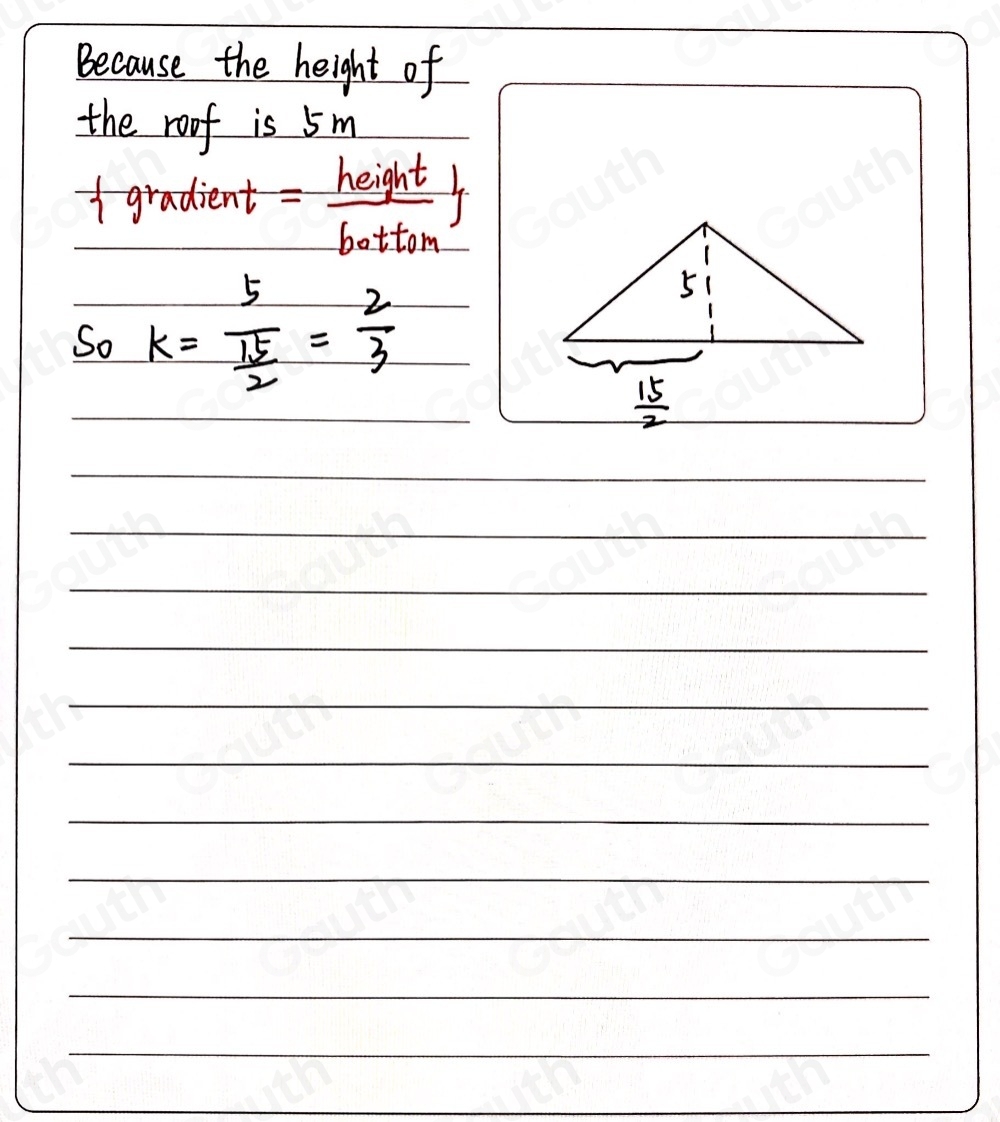 Because the height of
the roof is 5m
{ gradient = height/bottom }
So k = 5/(15/2) = 2/3
5
15/2
Gauth